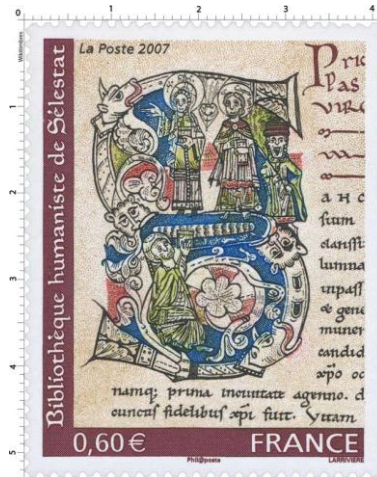 0 1 2 3 4
1
2
3
4
5
Wikitimbres
La Poste 2007
Bibliothèque humaniste de Sélestat
Pric
Las
VIRO
A H C
fuum
clarissi
lumna
uipass
& gene
muner
candid
xpo oc
namq; prima inouitate agenno. d
cunctis fidelibus xpi fuit. Vitam
0,60 €
FRANCE
Phil@poste
LARRIVIERE